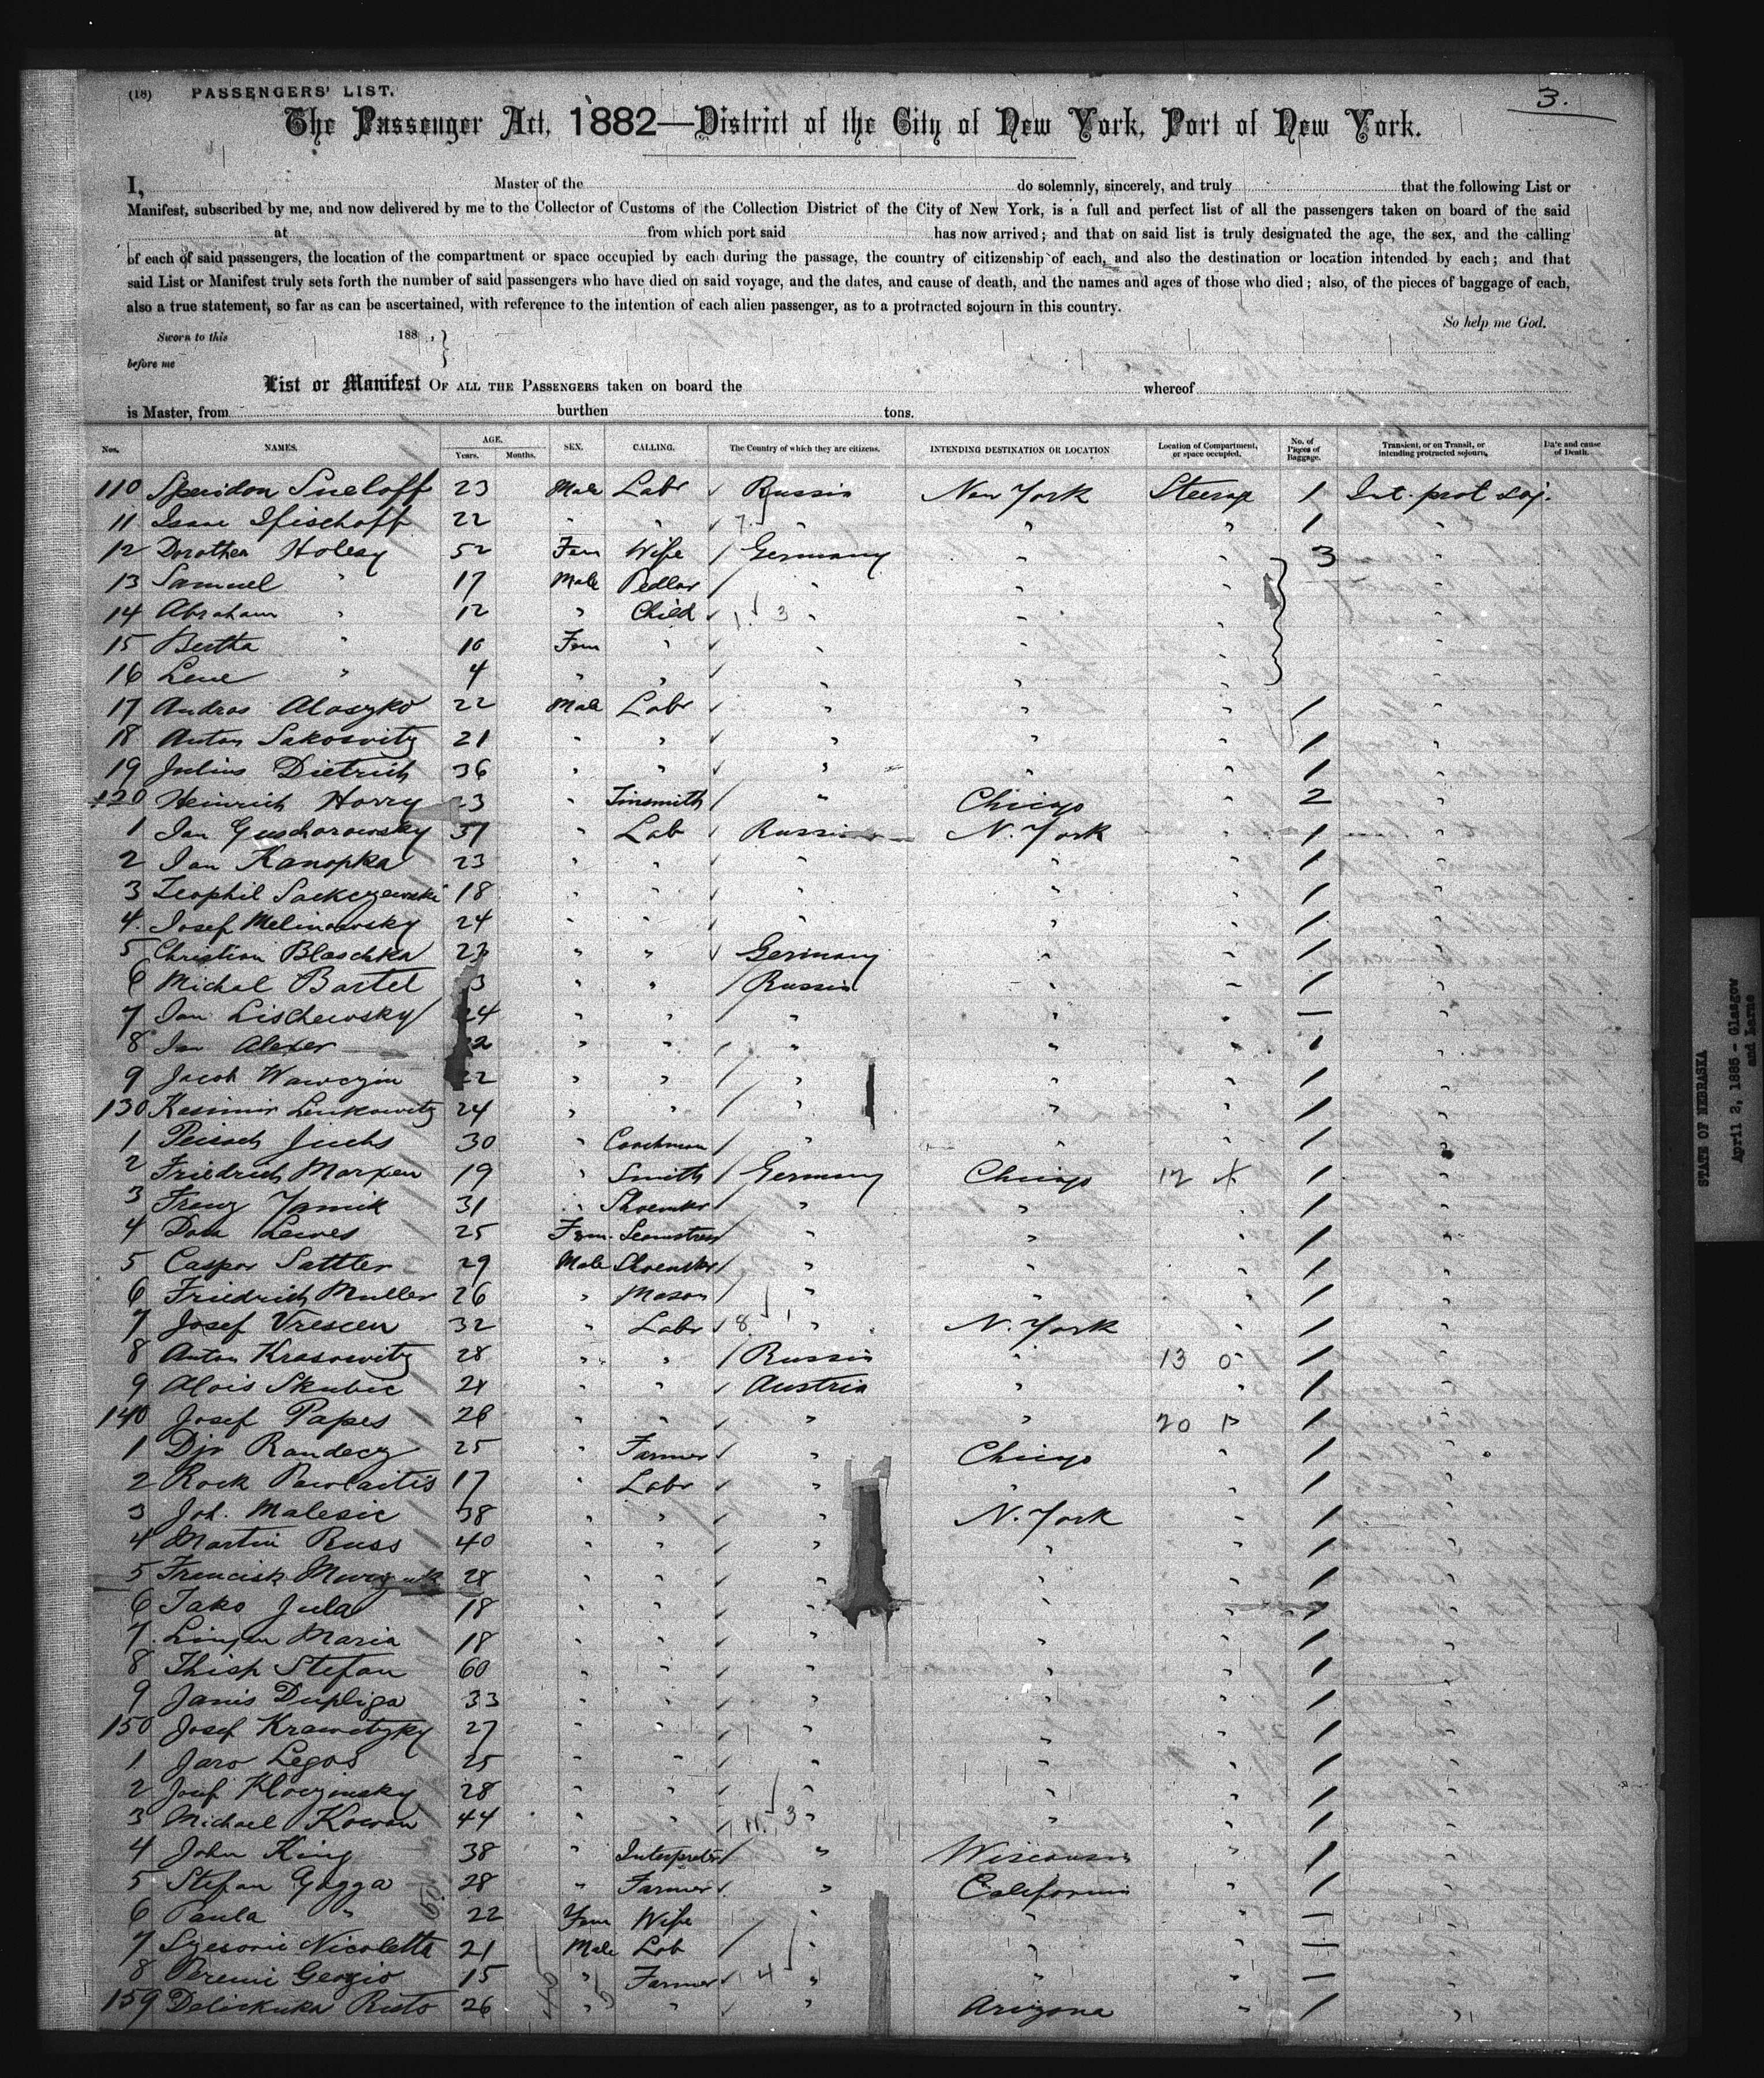 (18) PASSENGERS' LIST.
3.
The Passenger Act, 1882—District of the City of New York, Port of New York.
I, Master of the do solemnly, sincerely, and truly that the following List or
Manifest, subscribed by me, and now delivered by me to the Collector of Customs of the Collection District of the City of New York, is a full and perfect list of all the passengers taken on board of the said
at from which port said has now arrived; and that on said list is truly designated the age, the sex, and the calling
of each of said passengers, the location of the compartment or space occupied by each during the passage, the country of citizenship of each, and also the destination or location intended by each; and that
said List or Manifest truly sets forth the number of said passengers who have died on said voyage, and the dates, and cause of death, and the names and ages of those who died; also, of the pieces of baggage of each,
also a true statement, so far as can be ascertained, with reference to the intention of each alien passenger, as to a protracted sojourn in this country.
So help me God.
Sworn to this 188 ,
before me
List or Manifest OF ALL THE PASSENGERS taken on board the whereof
is Master, from burthen tons.
Nos. NAMES. AGE. Years. Months. SEX. CALLING. The Country of which they are citizens. INTENDING DESTINATION OR LOCATION Location of Compartment, or space occupied. No. of Pieces of Baggage. Transient, or on Transit, or intending protracted sojourn. Date and cause of Death.
110 23 Male Labr Russia New York Steerage 1 Int. prot soj.
11 Isaac 22 " " " " " 1 "
12 Dorothea Holesy 52 Fem Wife Germany " " 3 "
13 Samuel " 17 Male Pedlar " " " "
14 Abraham " 12 " Child " " " "
15 Bertha " 10 Fem " " " " "
16 Lene " 4 " " " " " "
17 Andras Aloszko 22 Male Labr " " " 1 "
18 Anton Sakosvitz 21 " " " " " 1 "
19 Julius Dietrich 36 " " " " " 1 "
120 Heinrich Horry 23 " Tinsmith " Chicago " 2 "
1 Jan Guschorowsky " Lab Russia N. York " 1 "
2 Jan Kanopka 23 " " " " " 1 "
3 18 " " " " " 1 "
4. Josef Melinowsky 24 " " " " " 1 "
5 Christian Blaschka " " Germany " " 1 "
6 Michal Bartel 3 " " Russia " " 1 "
7 Jan Lischewsky 24 " " " " " "
8 Jan " " " " " 1 "
9 Jacob Wawczin " " " " " 1 "
130 Kasimir Linkowitz 24 " " " " " 1 "
1 30 " Coachman " " " 1 "
2 Friedrich Marxen 19 " Smith Germany Chicago 12 1 "
3 Franz 31 " Shoemkr " " " 1 "
4 25 Fem. Seamstress " " " 1 "
5 Caspar Sattler 29 Male Shoemkr " " " 1 "
6 Friedrich Muller 26 " Mason " " " 1 "
7 Josef 32 " Labr " N. York " 1 "
8 Anton Krasowitz 28 " " Russia " 13 1 "
9 Alois Skubic " " Austria " " 1 "
140 Josef Papes 26 " " " " 20 1 "
1 25 " Farmer " Chicago " 1 "
2 Rock Pawlaitis 17 " Labr " " " 1 "
3 Joh. Malesic 38 " " " N. York " 1 "
4 Martin Russ 40 " " " " " 1 "
5 Francisk 28 " " " " " 1 "
6 Jula 18 " " " " " 1 "
7. Maria 18 " " " " " 1 "
8 Stefan 60 " " " " " 1 "
9 Janis Dupliga 33 " " " " " 1 "
150 Josef Krawitzky 27 " " " " " 1 "
1 Legos 25 " " " " " 1 "
2 Josef 28 " " " " " 1 "
3 Michael Kowan 44 " " " " " 1 "
4 John King 38 " Interpreter " Wisconsin " 1 "
5 Stefan Gagga 28 " Farmer " California " 1 "
6 Paula " 22 Fem Wife " " " "
7 Nicoletta 21 Male Lab " " " "
8 15 " Farmer " " " "
159 26 " " " Arizona " 1 "
STATE OF NEBRASKA
April 2, 1885 - Glasgow
and Larne